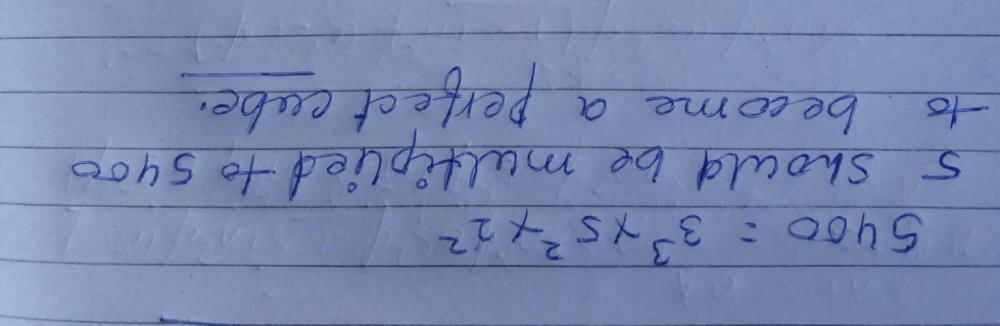 5400 = 3³ x 5² x 2²
5 should be multiplied to 5400
to become a perfect cube.